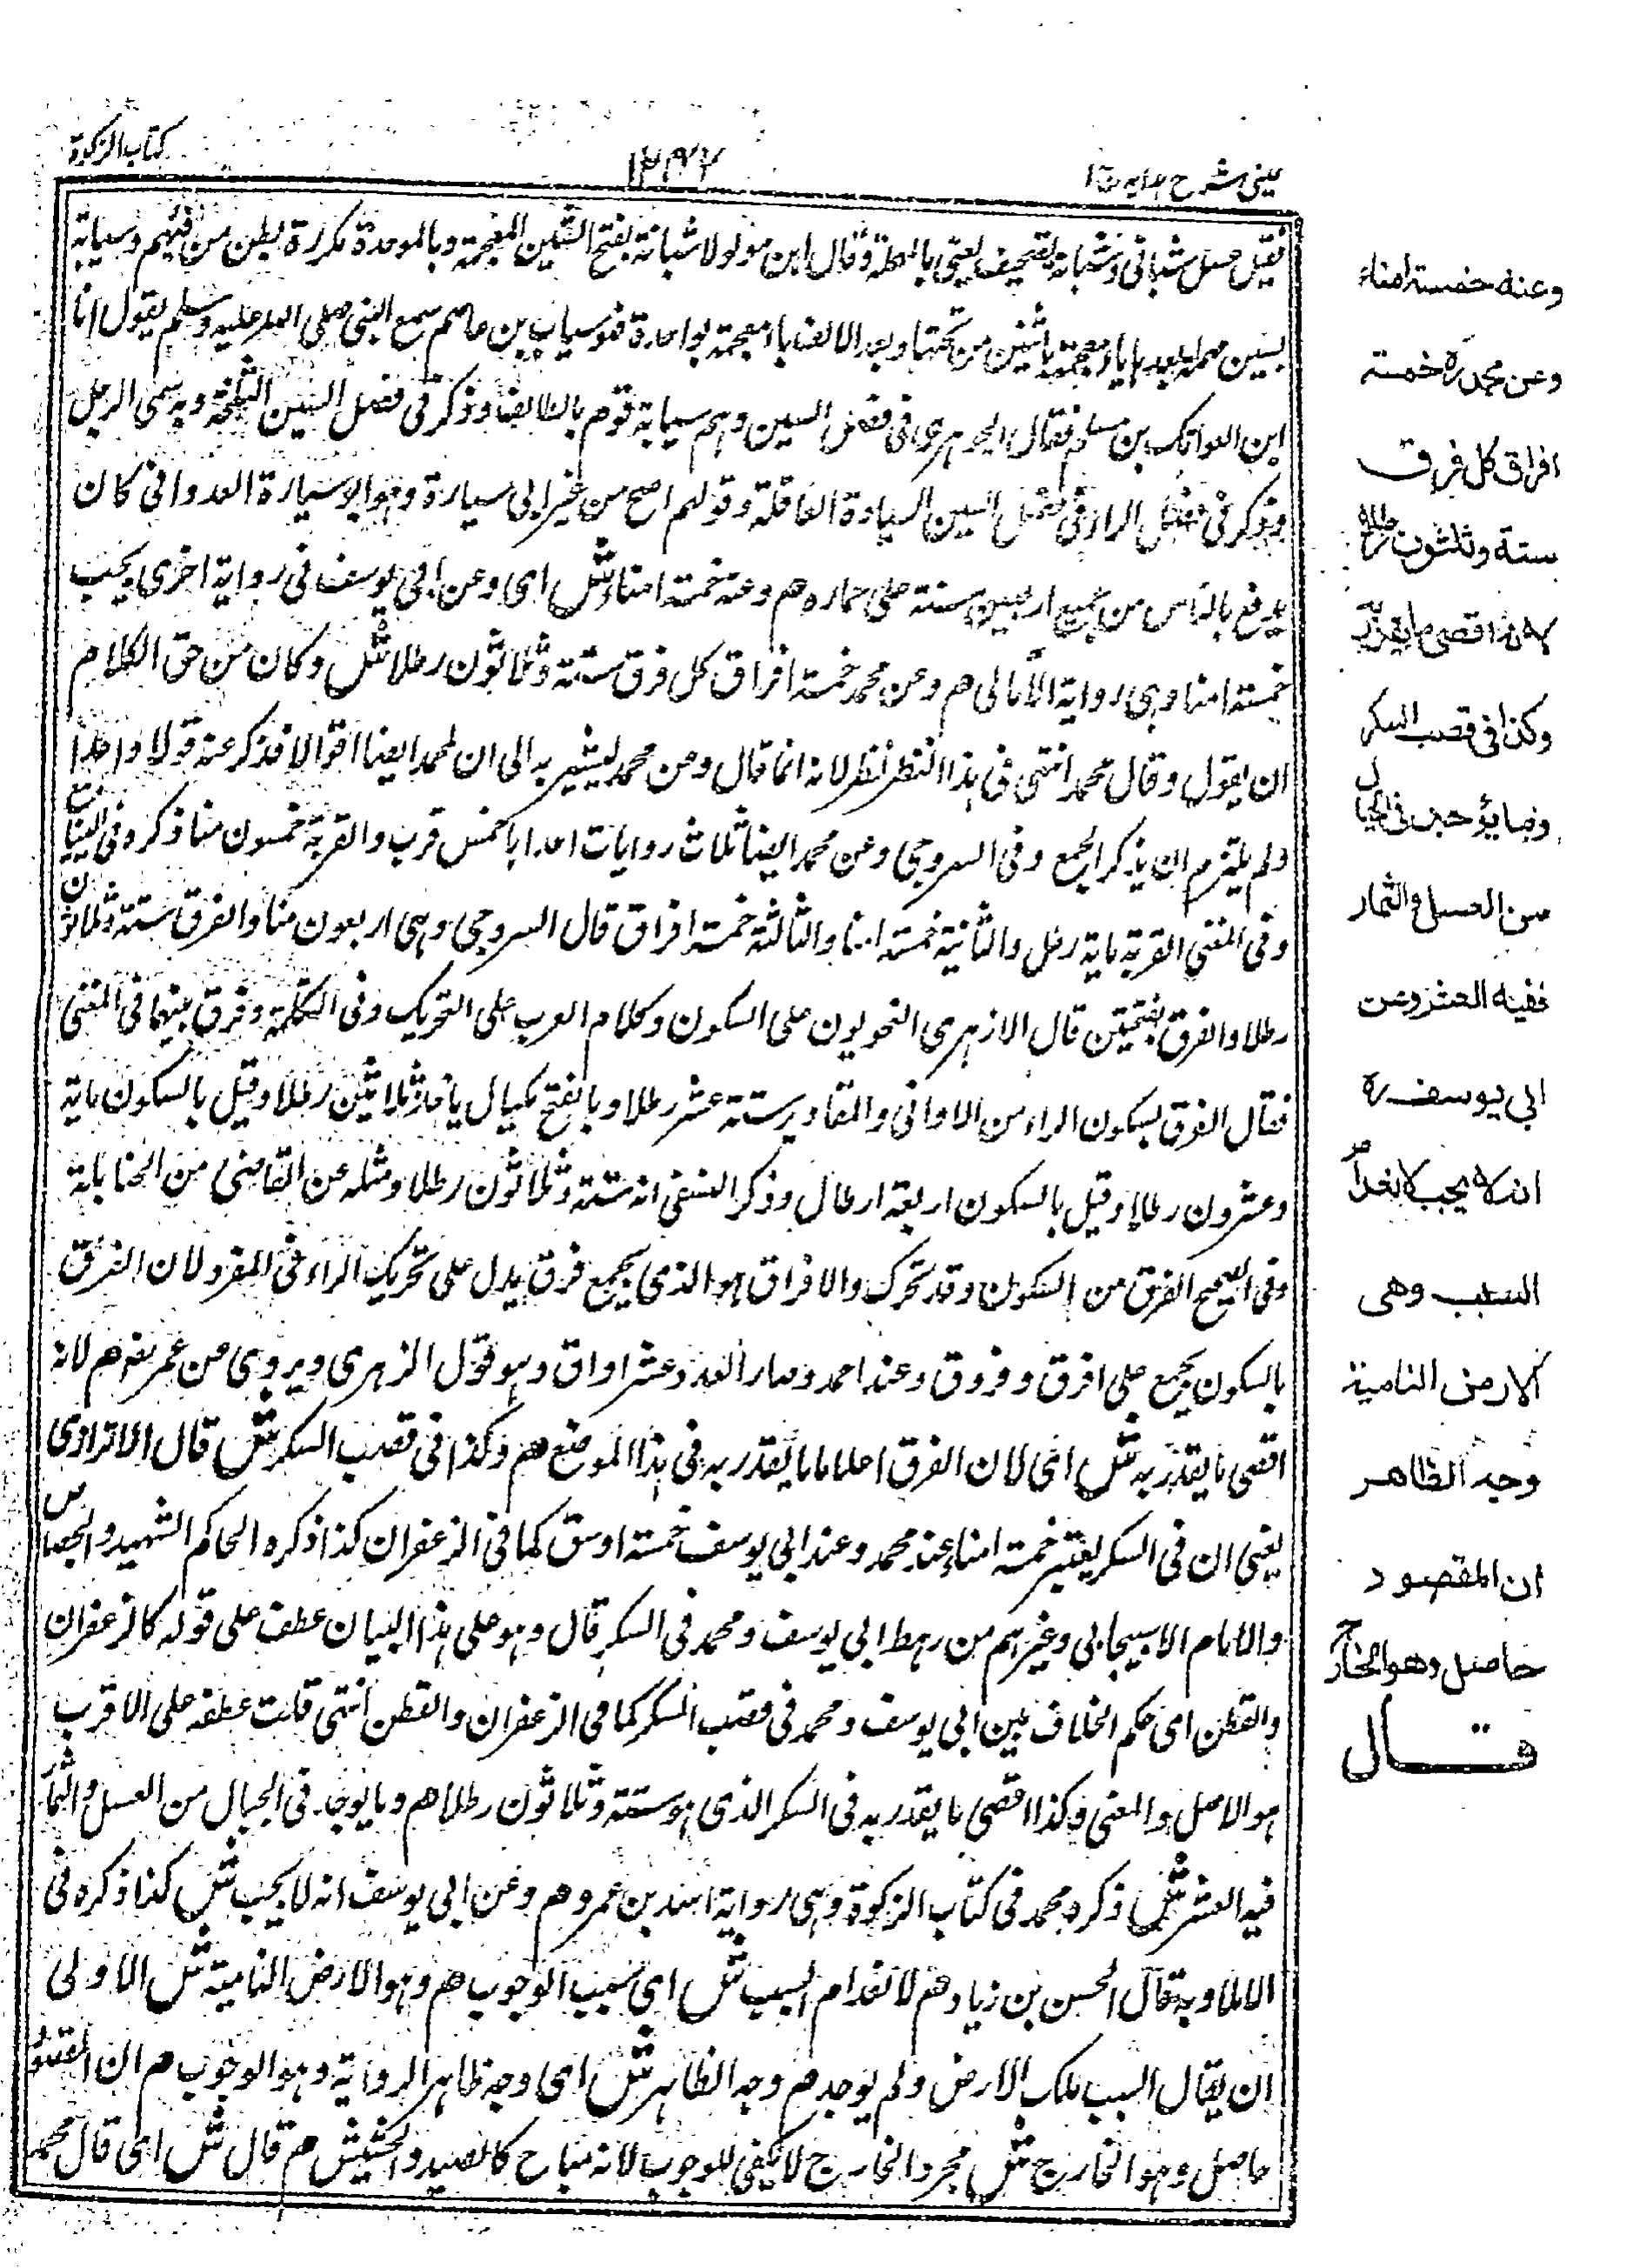 عینی شرح ہدایہ ج ۱
۱۲۹۲
کتاب الزکوة
فقیل عسل شبانی وشبانة تصحیف یعنی بالمهملة وقال ابن مولولا شبانة بفتح الشین المعجمة وبالموحدة مکررة بطن من فهم وسیابة
بسین مهملة بعدها یاء معجمة باثنین من تحتها وبعد الالف باء معجمة بواحدة فهو سیابة بن عاصم سمع النبی صلی الله علیه وسلم یقول انا
ابن العواتک بن سلیم فقال الجوهری فی فصل السین وهم سیابة قوم بالطائف وذکر فی فصل السین البلحة وبه سمی الرجل
وذکر فی فصل الراء فی فصل السین السیارة القافلة وقولهم اصح من عیر ابی سیارة وهو ابو سیارة العدوانی کان
یدفع بالناس من جمع اربعین سنة علی حماره هم وعنه خمسة امناء ش ای وعن ابی یوسف فی روایة اخری یجب
خمسة امناء وهی روایة الامالی هم وعن محمد خمسة افراق کل فرق ستة وثلاثون رطلا ش وکان من حق الکلام
ان یقول وقال محمد انتهی فی هذا النظر نظر لانه انما قال وعن محمد لیشیر به الی ان لمحمد ایضا اقوالا فذکر عنه قولا واحدا
ولم یلتزم ان یذکر الجمع وفی السروجی وعن محمد ایضا ثلاث روایات احداها خمس قرب والقربة خمسون منا ذکره فی الینابیع
وفی المغنی القربة مایة رطل والثانیة خمسة امناء والثالثة خمسة افراق قال السروجی وهی اربعون منا والفرق ستة وثلاثون
رطلا والفرق بفتحتین قال الازهری النحویون علی السکون وکلام العرب علی التحریک وفی التکملة وفرق بینهما فی المغنی
فقال الفرق بسکون الراء من الاوانی والمقادیر ستة عشر رطلا وبالفتح مکیال یاخذ ثلاثین رطلا وقیل بالسکون مایة
وعشرون رطلا وقیل بالسکون اربعة ارطال وذکر النسفی انه ستة وثلاثون رطلا ومثله عن القاضی من الحنابلة
وفی الصحیح الفرق من السکون وقد تحرک والافراق هو الذی یجمع فرق یدل علی تحریک الراء فی المفرد لان الفرق
بالسکون یجمع علی افرق وفروق وعند احمد وصار العدد عشر اواق وهو قول الزهری ویروی عن عمر هم لانه
اقصی ما یقدر به ش ای لان الفرق اعلا ما یقدر به فی هذا الموضع هم وکذا فی قصب السکر ش قال الاترازی
یعنی ان فی السکر یعتبر خمسة امناء عند محمد وعند ابی یوسف خمسة اوسق کما فی الزعفران کذا ذکره الحاکم الشهید والجصاص
والامام الاسبیجابی وغیرهم من رهط ابی یوسف ومحمد فی السکر قال وهو علی هذا البیان عطف علی قوله کالزعفران
والقطن ای حکم الخلاف بین ابی یوسف ومحمد فی قصب السکر کما فی الزعفران والقطن انتهی قلت عطفه علی الاقرب
هو الاصل والمعنی وکذا اقصی ما یقدر به فی السکر الذی هو ستة وثلاثون رطلا هم وما یوجد فی الجبال من العسل والثمار
فیه العشر ش ذکره محمد فی کتاب الزکوة وهی روایة اسد بن عمرو هم وعن ابی یوسف انه لا یجب ش کذا ذکره فی
الاملاء وبه قال الحسن بن زیاد هم لانعدام السبب ش ای سبب الوجوب هم وهو الارض النامیة ش الاولی
ان یقال السبب ملک الارض ولم یوجد هم وجه الظاهر ش ای وجه ظاهر الروایة وهو الوجوب هم ان المقصود
حاصل وهو الخارج ش مجرد الخارج لا یکفی للوجوب لانه مباح کالصید والحشیش هم قال ش ای قال محمد
وعنه خمسة امناء
وعن محمد ره خمسة
افراق کل فرق
ستة وثلثون رطلا
لانه اقصی ما یقدر به
وکذا فی قصب السکر
وما یؤخذ فی الجبال
من العسل والثمار
ففیه العشر وعن
ابی یوسف ره
انه لا یجب لانعدام
السبب وهی
الارض النامیة
وجه الظاهر
ان المقصود
حاصل وهو الخارج
قال